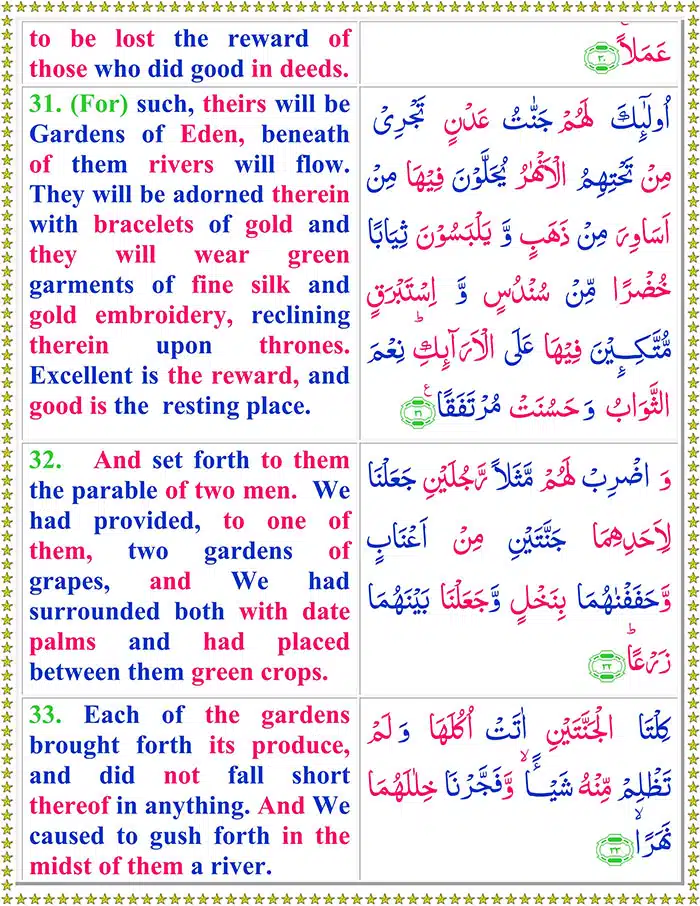 to be lost the reward of
those who did good in deeds.
عَمَلاً ۝٣٠
31. (For) such, theirs will be
Gardens of Eden, beneath
of them rivers will flow.
They will be adorned therein
with bracelets of gold and
they will wear green
garments of fine silk and
gold embroidery, reclining
therein upon thrones.
Excellent is the reward, and
good is the resting place.
اُولٰٓئِكَ لَهُمْ جَنّٰتُ عَدْنٍ تَجْرِىْ
مِنْ تَحْتِهِمُ الْاَنْهٰرُ يُحَلَّوْنَ فِيْهَا مِنْ
اَسَاوِرَ مِنْ ذَهَبٍ وَّ يَلْبَسُوْنَ ثِيَابًا
خُضْرًا مِّنْ سُنْدُسٍ وَّ اِسْتَبْرَقٍ
مُّتَّكِـِٕيْنَ فِيْهَا عَلَى الْاَرَآٮِٕكِ‌ؕ نِعْمَ
الثَّوَابُ وَحَسُنَتْ مُرْتَفَقًا ۝٣١
32. And set forth to them
the parable of two men. We
had provided, to one of
them, two gardens of
grapes, and We had
surrounded both with date
palms and had placed
between them green crops.
وَ اضْرِبْ لَهُمْ مَّثَلاً رَّجُلَيْنِ جَعَلْنَا
لِاَحَدِهِمَا جَنَّتَيْنِ مِنْ اَعْنَابٍ
وَّحَفَفْنٰهُمَا بِنَخْلٍ وَّجَعَلْنَا بَيْنَهُمَا
زَرْعًاؕ ۝٣٢
33. Each of the gardens
brought forth its produce,
and did not fall short
thereof in anything. And We
caused to gush forth in the
midst of them a river.
كِلْتَا الْجَنَّتَيْنِ اٰتَتْ اُكُلَهَا وَلَمْ
تَظْلِمْ مِّنْهُ شَيْــًٔاۙ وَّفَجَّرْنَا خِلٰلَهُمَا
نَهَرًاۙ ۝٣٣